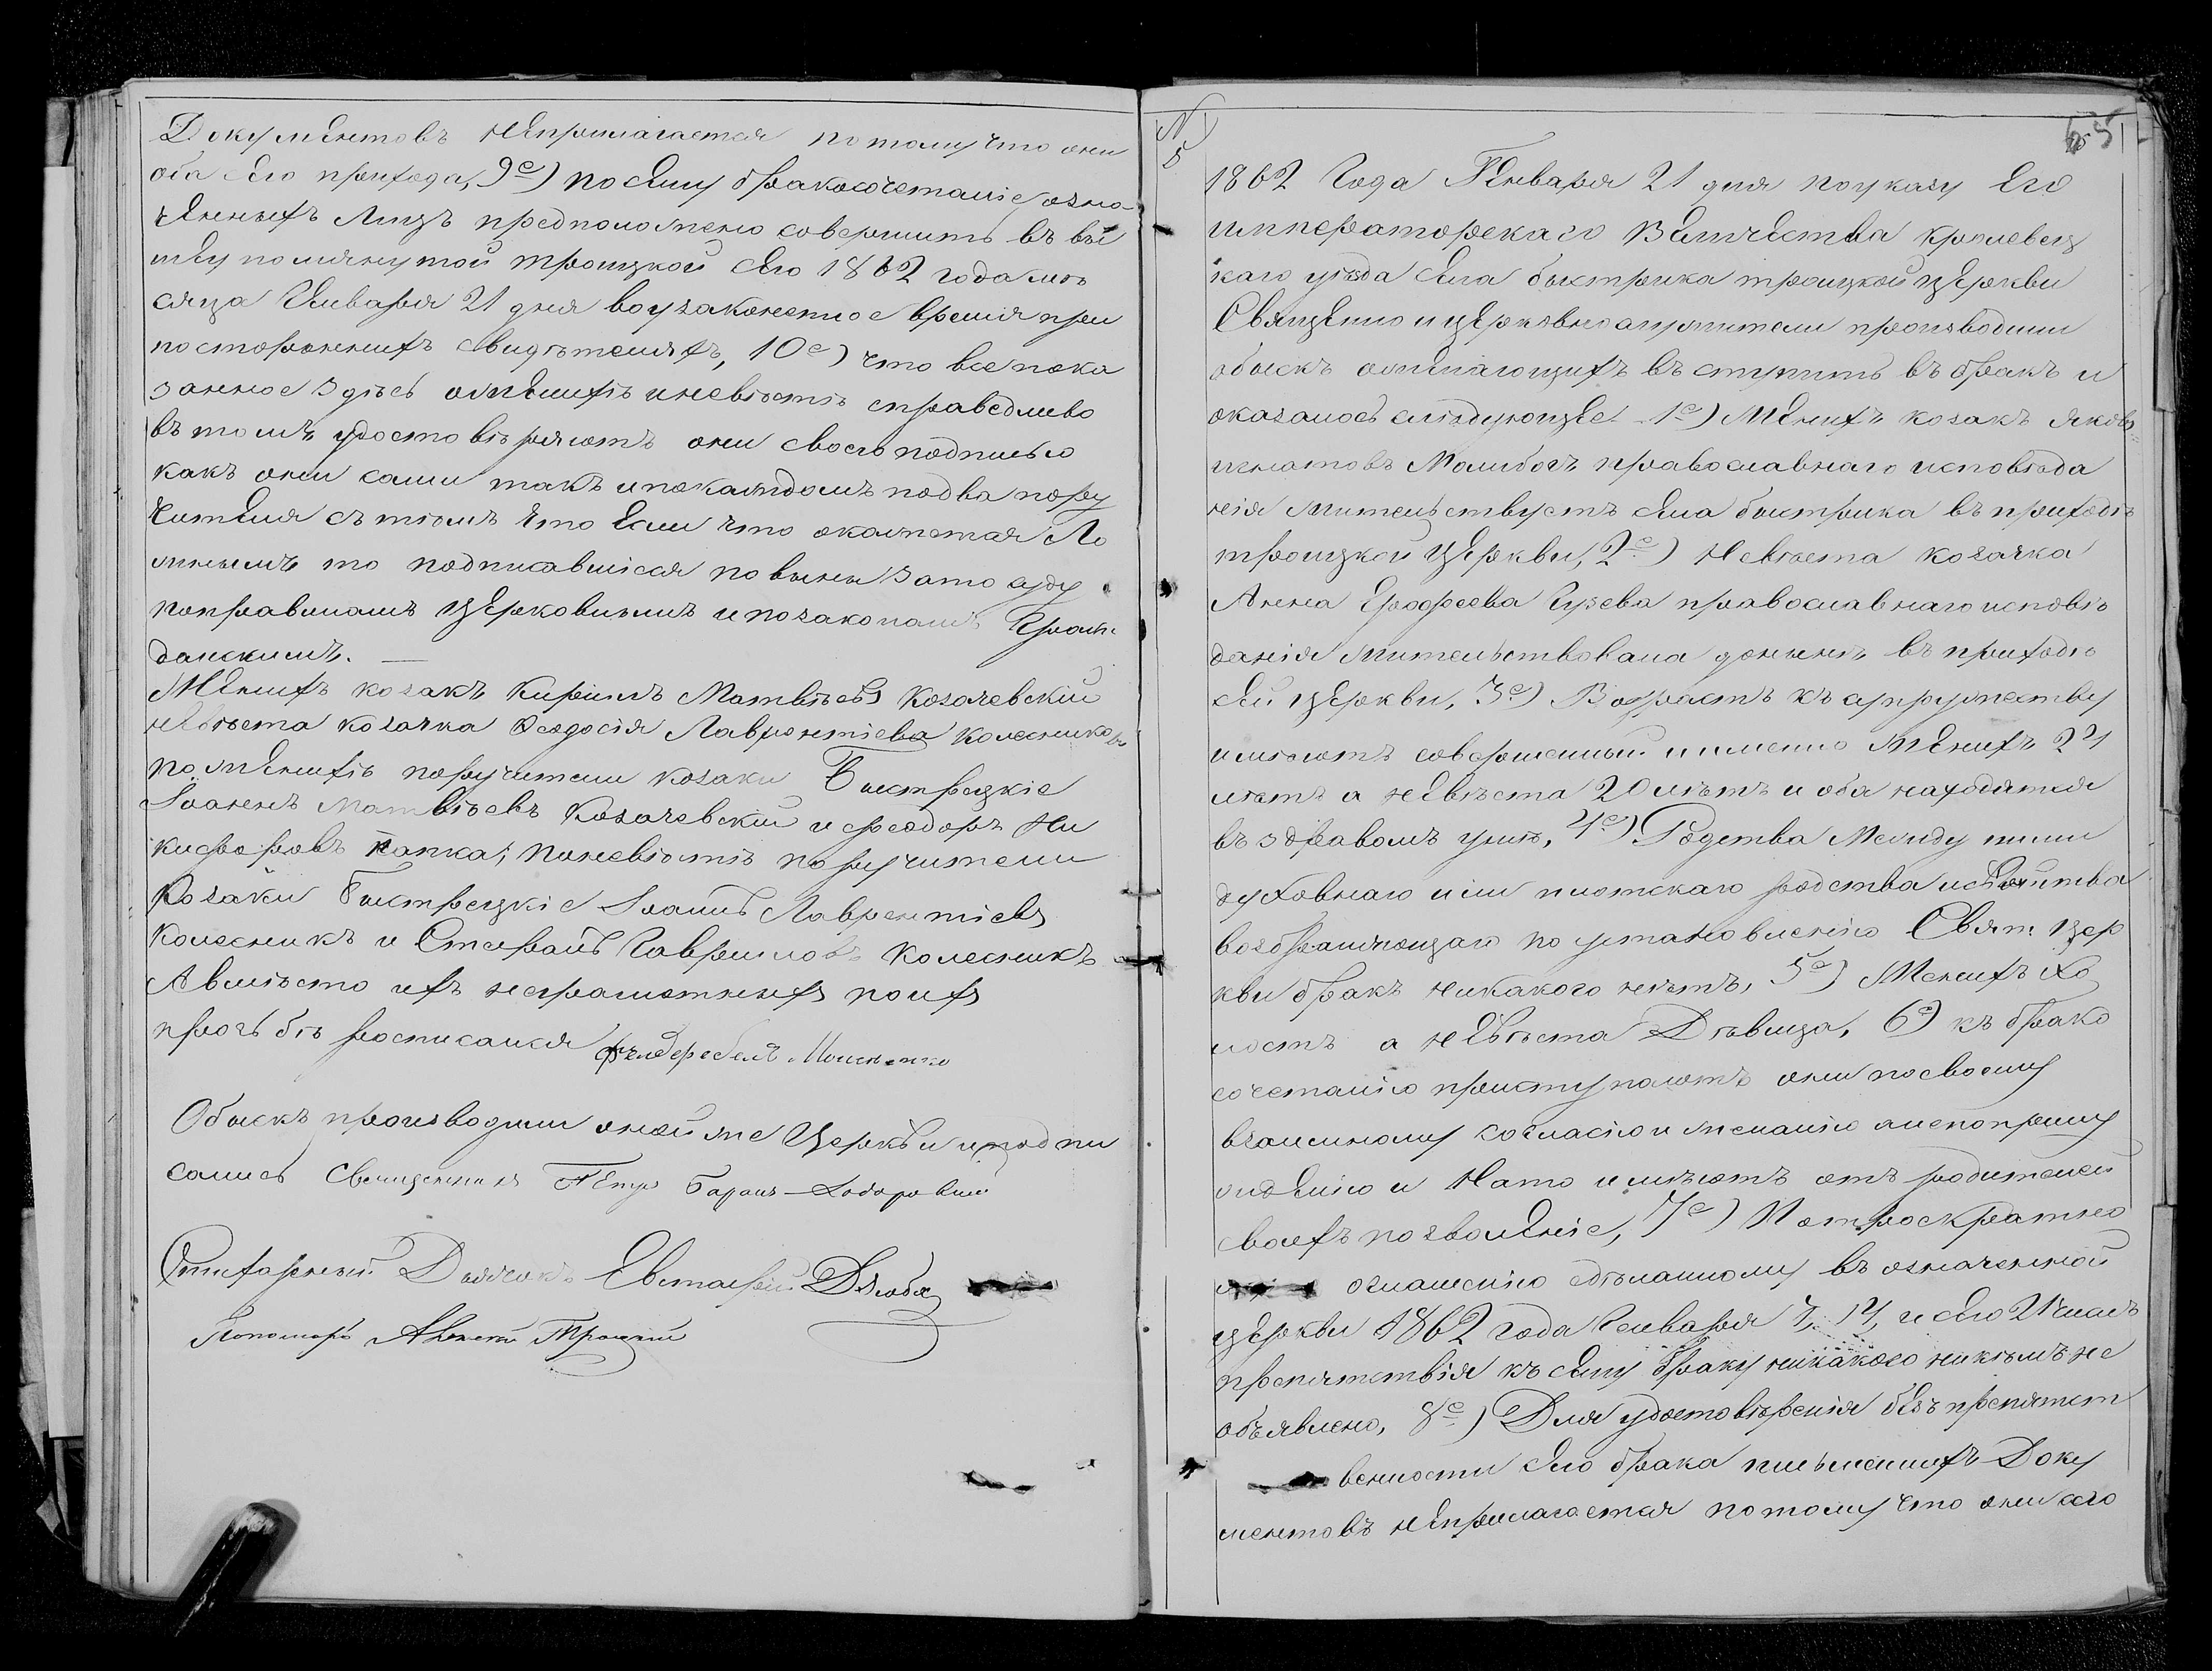 Документовъ неприлагается потому что они
оба сего прихода, 9е) посему бракосочетаніе озна-
ченныхъ лицъ предположено совершить въ вы
шеупомянутой троицкой сего 1862 года мѣ
сяца Генваря 21 дня воузаконенное время при
постороннихъ свидѣтеляхъ, 10е) что все пока
занное здѣсь ожених ѣ иневѣстѣ справедливо
въ томъ удостовѣряютъ они своею подписью
какъ они сами такъ и покаждомъ подва пору
чителя съ тѣмъ что Если что окажется Ло
жнымъ то подписавшіеся повинны зато суду
поправиламъ Церковнымъ и позаконамъ Граж
данскимъ. —
Женихъ козакъ Кирилъ Матвѣевъ Козачевскій
невѣста козачка Ѳеодосія Лаврентіева Колесникова
поженихѣ поручители козаки Быстрецкіе
Іоаннъ Матвѣевъ Козачевскій и феодоръ Ни
кифоровъ Капка; поневѣстѣ поручители
Козаки Быстрецкіе Іоаннъ Лаврентіевъ
Колесникъ и Стефанъ Гавриловъ Колесникъ
Авмѣсто ихъ неграмотныхъ поихъ
прозьбѣ росписался
Обыскъ производили оной же Церкви иподпи
сались Священникъ Петръ Баранъ-Ходоровскій
Дьячокъ Евстафій Дзюба
Пономарь Алексій Троцкій
N
5
5
1862 Года Генваря 21 дня поуказу Его
императорскаго Величества кролевец
каго уѣзда села быстрика троицкой церкви
Священно и церковнослужители производили
обыскъ ожелающихъ въступить въ бракъ и
оказалось слѣдующее 1е) Женихъ козакъ яковъ
игнатовъ Молибогъ православнаго исповѣда
нія жительствуетъ села быстрика въ приходѣ
троицкой церкви, 2е) Невѣста козачка
Анна Ерофеева Гузева православнаго исповѣ
данія жительствовала донынѣ въ приходѣ
сей церкви, 3е) Возрастъ къ супружеству
имѣютъ совершенный и именно женихъ 24
лѣтъ а невѣста 20 лѣтъ и оба находятся
въ здравомъ умѣ, 4е) Родства Между ними
духовнаго или плотскаго родства исвойства
возбраняющаго по установленію Свят. Цер
кви бракъ никакого нетъ, 5е) Женихъ Хо
лостъ а невѣста Дѣвица, 6е) къ брако
сочетанію приступаютъ они посвоему
взаимному согласію и желанію анепоприну
жденію и Нато имѣютъ отъ родителей
своихъ позволеніе, 7е) Потроекратно
му оглашенію сдѣланному въ означенной
церкви 1862 года Генваря 7, 14, и сего 21 числъ
препятствія къ сему браку никакого никѣмъ не
объявлено, 8е) Для удостовѣренія безъпрепятст
венности сего брака письменныхъ Доку
ментовъ неприлагается потому что они сего